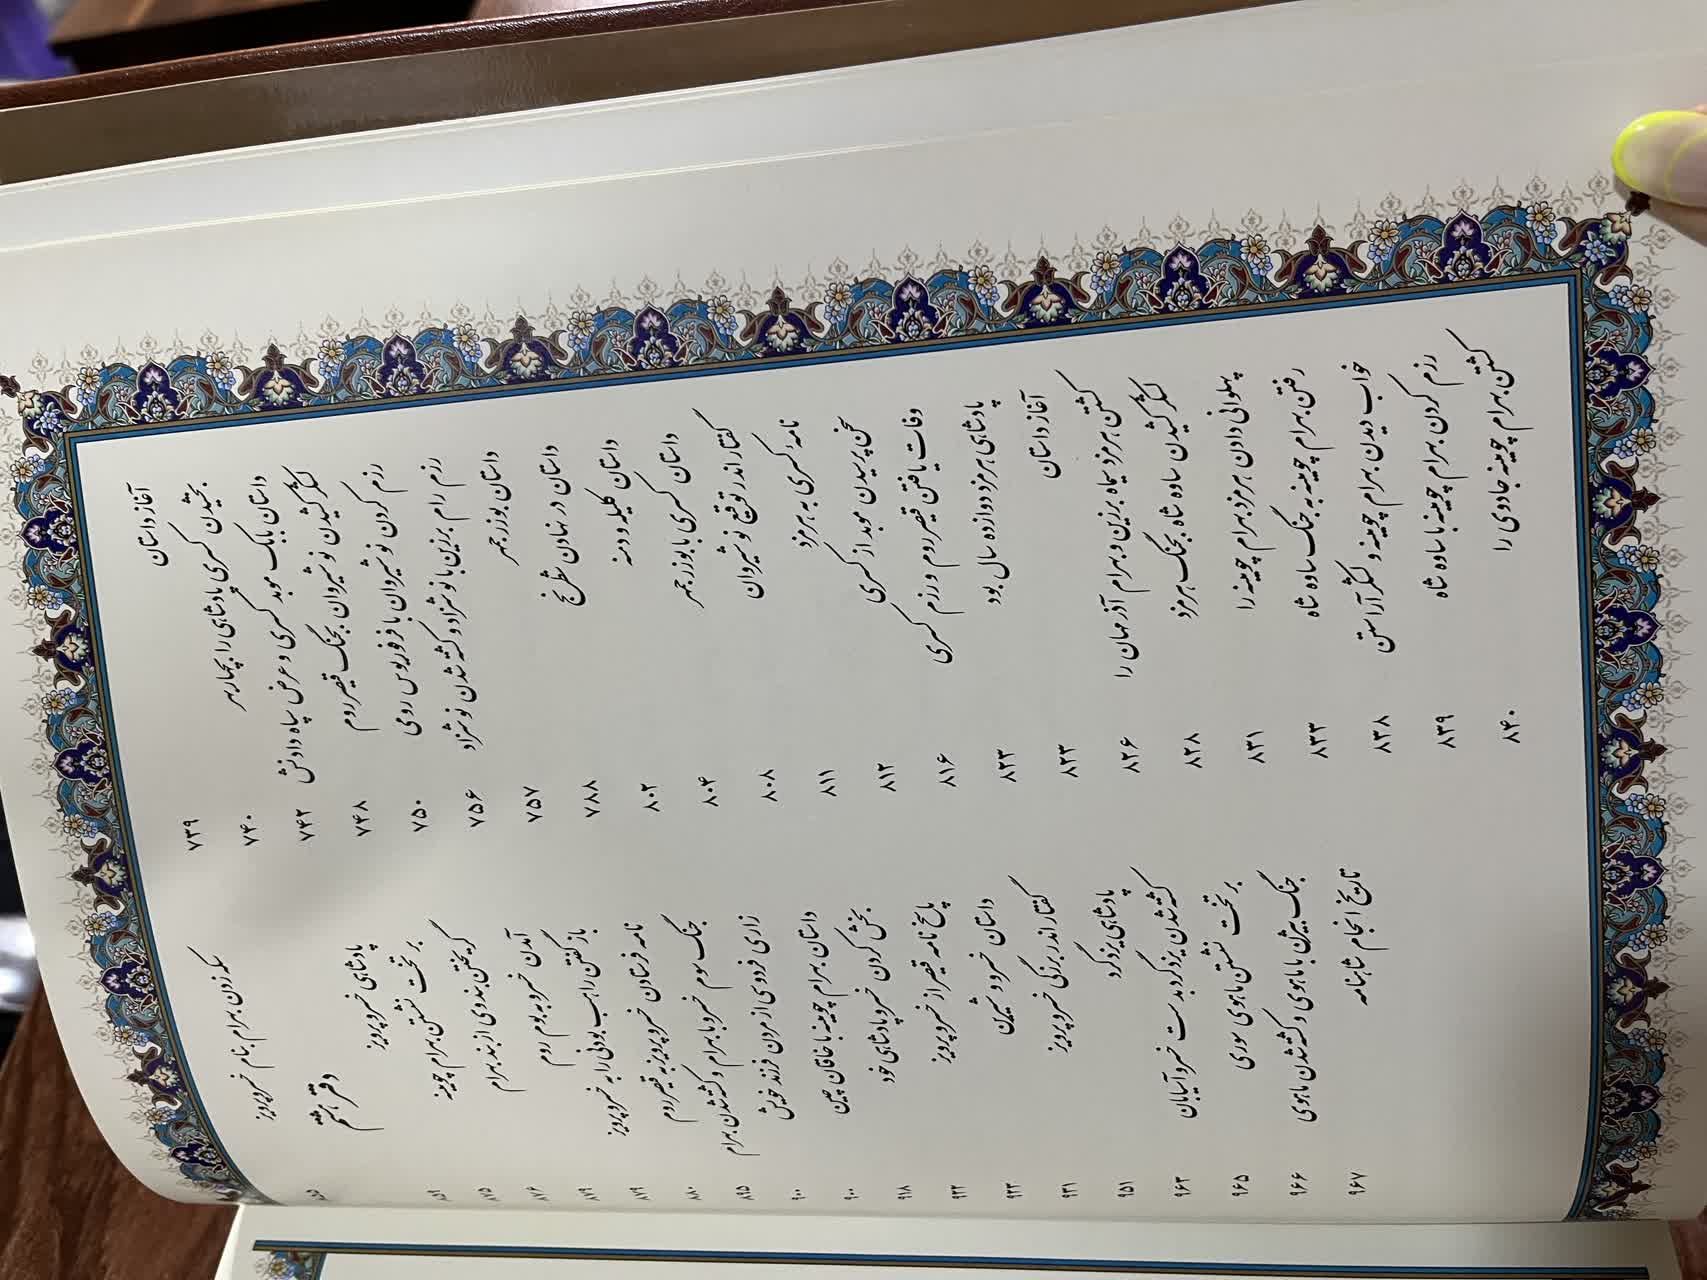 آغاز داستان ۷۳۹
بخشیدن کسری پادشاهی را بچهار بهر ۷۴۰
داستان بابک موبد کسری و عرض سپاه دادنش ۷۴۲
لشگر کشیدن نوشیروان بجنگ قیصر روم ۷۴۸
رزم کردن نوشیروان با فرفوریوس رومی ۷۵۰
رزم رام برزین با نوشزاد و کشته شدن نوشزاد ۷۵۶
داستان بوزرجمهر ۷۵۷
داستان در نهادن شطرنج ۷۸۸
داستان کلیله و دمنه ۸۰۲
داستان کسری با بوزرجمهر ۸۰۴
گفتار اندر توقیع نوشیروان ۸۰۸
نامه کسری به هرمزد ۸۱۱
سخن پرسیدن موبد از کسری ۸۱۲
وفات یافتن قیصر روم و رزم کسری ۸۱۶
پادشاهی هرمزد دوازده سال بود ۸۲۳
آغاز داستان ۸۲۳
کشتن هرمزد سیماه برزین و بهرام آذرمهان را ۸۲۶
لشگر کشیدن ساوه شاه بجنگ هرمزد ۸۲۸
پهلوانی دادن هرمزد بهرام چوبینه را ۸۳۱
رفتن بهرام چوبینه به جنگ ساوه شاه ۸۳۳
خواب دیدن بهرام چوبینه و لشگر آراستن ۸۳۸
رزم کردن بهرام چوبینه با ساوه شاه ۸۳۹
کشتن بهرام چوبینه جادوی را ۸۴۰
سکه زدن بهرام بنام خسرو پرویز
دفتر هشتم
پادشاهی خسرو پرویز ۸۵۹
بر تخت نشستن بهرام چوبینه ۸۷۵
گریختن بندوی از بند بهرام ۸۷۶
آمدن خسرو به بوم روم ۸۷۹
باز گفتن راهب بودنی را به خسرو پرویز ۸۷۹
نامه فرستادن خسرو پرویز به قیصر روم ۸۸۰
جنگ سوم خسرو با بهرام و کشته شدن بهرام ۸۹۵
زاری فردوسی از مردن فرزند خویش ۹۰۰
داستان بهرام چوبینه با خاقان چین ۹۰۰
بخش کردن خسرو پادشاهی خود ۹۱۸
پاسخ نامه قیصر از خسرو پرویز ۹۲۲
داستان خسرو و شیرین ۹۲۳
گفتار اندر بزرگی خسرو پرویز ۹۳۱
پادشاهی یزدگرد ۹۵۱
کشته شدن یزدگرد بدست خسرو آسیابان ۹۶۳
بر تخت نشستن ماهوی سوری ۹۶۵
جنگ بیژن با ماهوی و کشته شدن ماهوی ۹۶۶
تاریخ انجام شاهنامه ۹۶۷